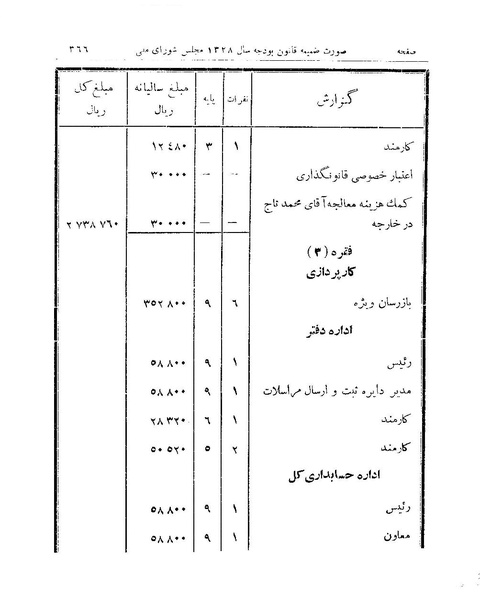 صفحه صورت ضمیمه قانون بودجه سال ۱۳۲۸ مجلس شورای ملی ۳۶۶
گزارش نفرات پایه مبلغ سالیانه ریال مبلغ کل ریال
کارمند ۱ ۳ ۱۲۴۸۰
اعتبار خصوصی قانونگذاری — — ۳۰۰۰۰
کمك هزینه معالجه آقای محمد تاج
در خارجه — — ۳۰۰۰۰ ۲۷۳۸۷۶۰
فقره (۳)
کارپردازی
بازرسان ویژه ۶ ۹ ۳۵۲۸۰۰
اداره دفتر
رئیس ۱ ۹ ۵۸۸۰۰
مدیر دایره ثبت و ارسال مراسلات ۱ ۹ ۵۸۸۰۰
کارمند ۱ ۶ ۲۸۳۲۰
کارمند ۲ ۵ ۵۰۵۲۰
اداره حسابداری کل
رئیس ۱ ۹ ۵۸۸۰۰
معاون ۱ ۹ ۵۸۸۰۰